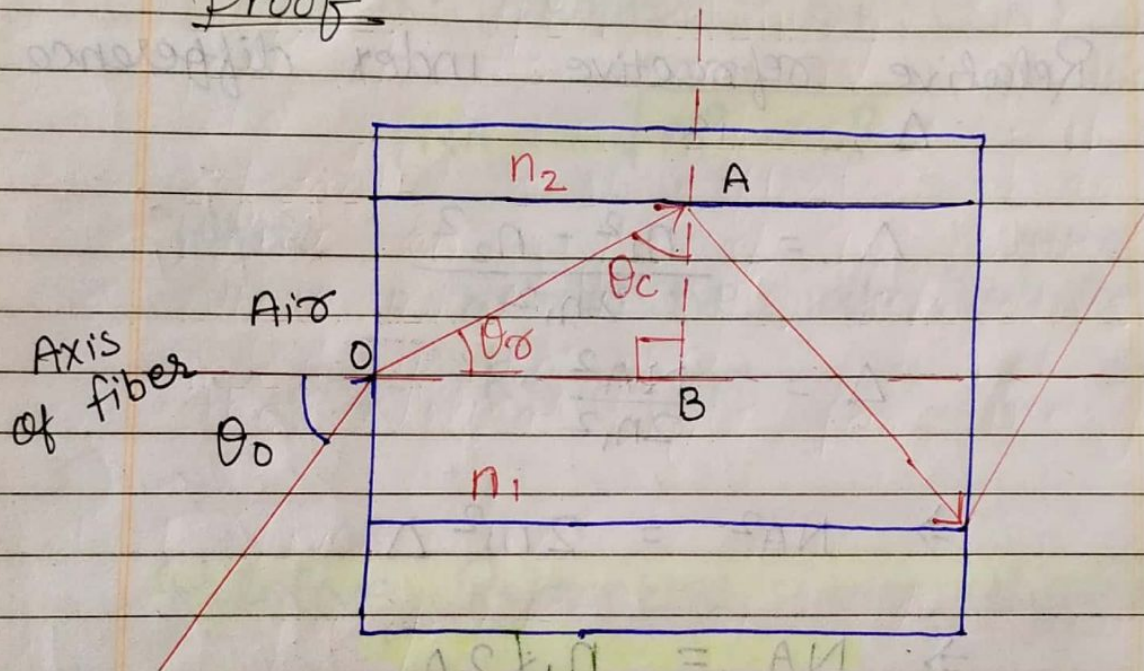 Proof
n2 A
θc
Air
θr
Axis
of fiber
O
B
θ0
n1